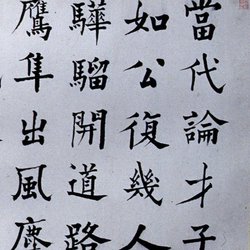 當代論才子
如公復幾人
驊騮開道路
鷹隼出風塵